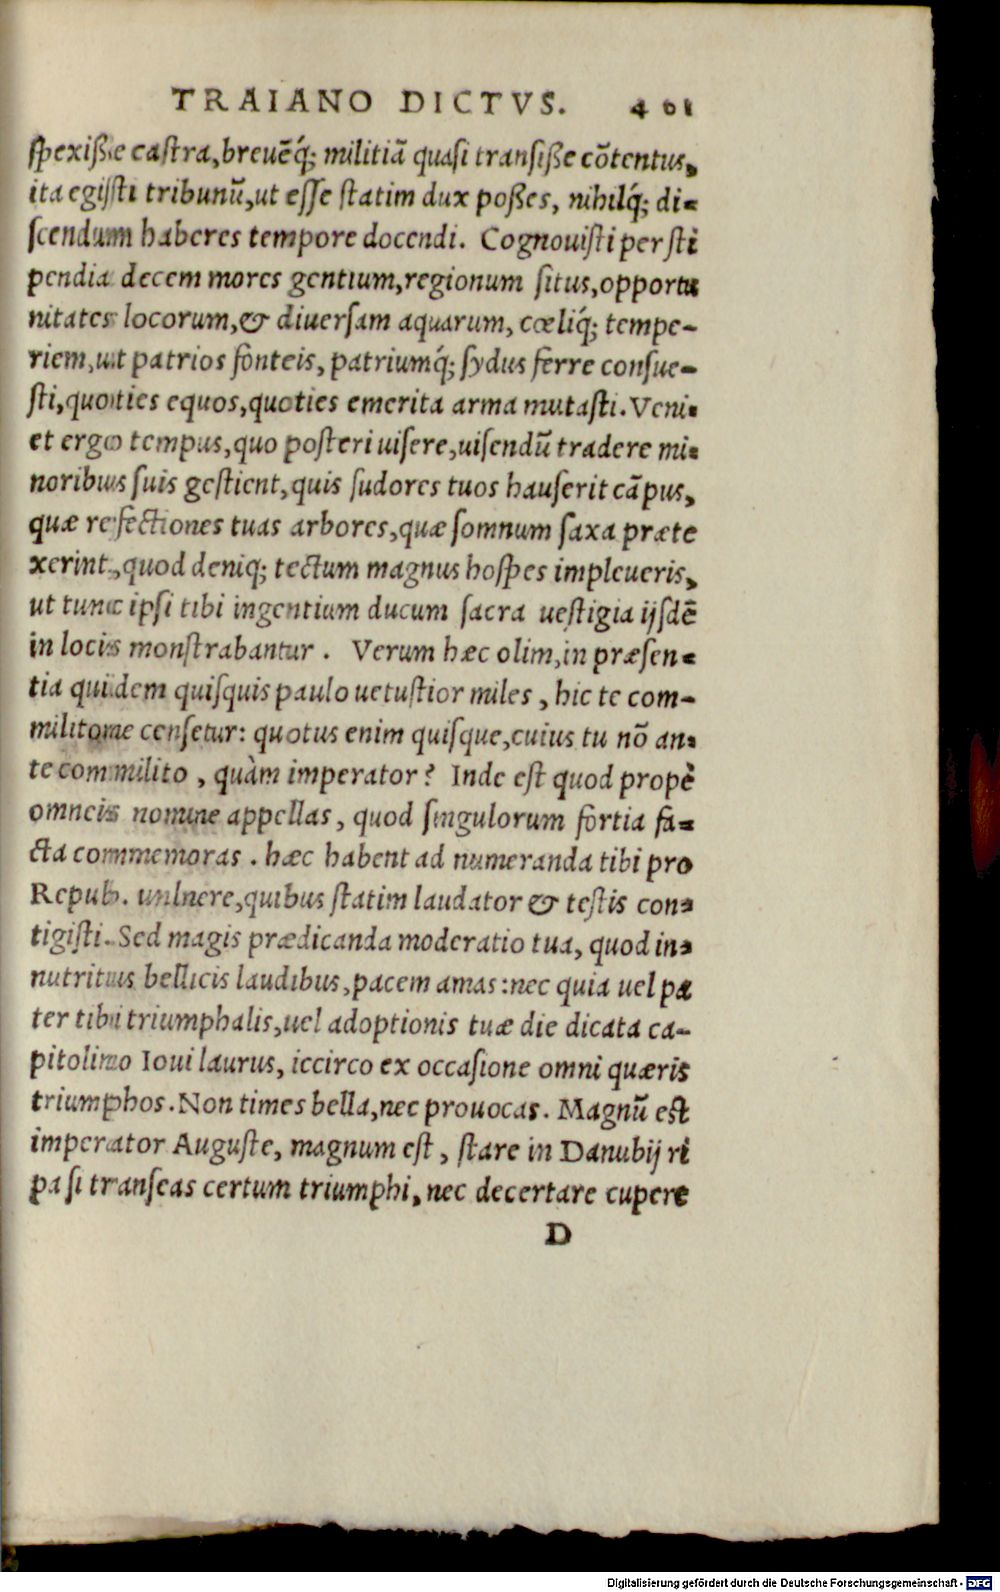 TRAIANO DICTVS. 401
ſpexiße caſtra, breuēq́; militiā quaſi tranſiße cōtentus,
ita egiſti tribunū, ut eſſe ſtatim dux poßes, nihilq́; di-
ſcendum haberes tempore docendi. Cognouiſti per ſti
pendia decem mores gentium, regionum ſitus, opportu
nitates locorum, & diuerſam aquarum, cœliq́; tempe-
riem, ut patrios fonteis, patriumq́; ſydus ferre conſue-
ſti, quoties equos, quoties emerita arma mutaſti. Veni-
et ergo tempus, quo poſteri uiſere, uiſendū tradere mi-
noribus ſuis geſtient, quis ſudores tuos hauſerit cāpus,
quæ refectiones tuas arbores, quæ ſomnum ſaxa præte
xerint, quod deniq; tectum magnus hoſpes impleueris,
ut tunc ipſi tibi ingentium ducum ſacra ueſtigia ijſdē
in locis monſtrabantur. Verum hæc olim, in præſen-
tia quidem quiſquis paulo uetuſtior miles, hic te com-
militone cenſetur: quotus enim quiſque, cuius tu nō an-
te commilito, quàm imperator? Inde eſt quod propè
omneis nomine appellas, quod ſingulorum fortia fa-
cta commemoras. hæc habent ad numeranda tibi pro
Repub. uulnere, quibus ſtatim laudator & teſtis con-
tigiſti. Sed magis prædicanda moderatio tua, quod in-
nutritus bellicis laudibus, pacem amas: nec quia uel pa
ter tibi triumphalis, uel adoptionis tuæ die dicata ca-
pitolino Ioui laurus, iccirco ex occaſione omni quæris
triumphos. Non times bella, nec prouocas. Magnū eſt
imperator Auguſte, magnum eſt, ſtare in Danubij ri
pa ſi tranſeas certum triumphi, nec decertare cupere
D
Digitalisierung gefördert durch die Deutsche Forschungsgemeinschaft - DFG